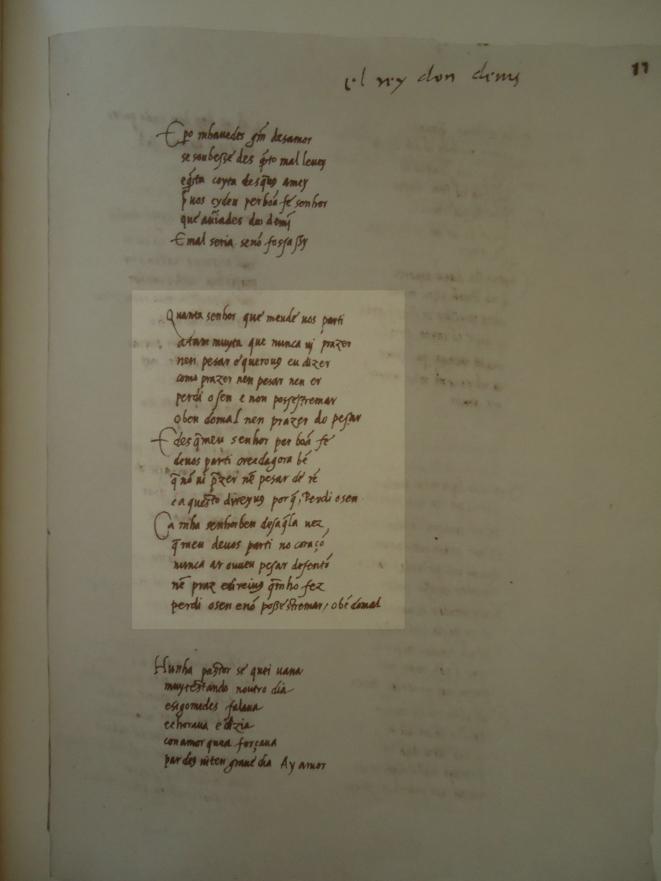 el rey don denis
17
E po mhauedes grã desamor
se soubessẽ des q̃nto mal leuey
e q̃nta coyta des q̃ uꝯ amey
q̃ uos cydeu per boã fe senhor
que auiades do demĩ
E mal seria senõ fossassy
Quantá senhor que meudé uos parti
atam muyta que nunca ui prazer
nen pesar e querouꝯ eu dizer
como prazer nen pesar nen er
perdi o sen e non possestremar
o ben domal nen prazer do pesar
E des q̃meu senhor per boã fé
deuos parti creedagora bẽ
q̃ nõ ui p̃zer nẽ pesar de rẽ
e aquesto direyuꝯ por q̃, Perdi o sen
Ca mha senhor ben desaq̃la uez
q̃meu deuos parti no coraçõ
nunca ar ouueu pesar desentõ
nẽ praz e direiuꝯ q̃mho fez
perdi o sen enõ possestremar, o bẽ domal
Hunha pastor se quei uana
muytestando noutro dia
e sigo medes falaua
e choraua e dizia
con amor quea forçaua
par des uiten graue dia Ay amor